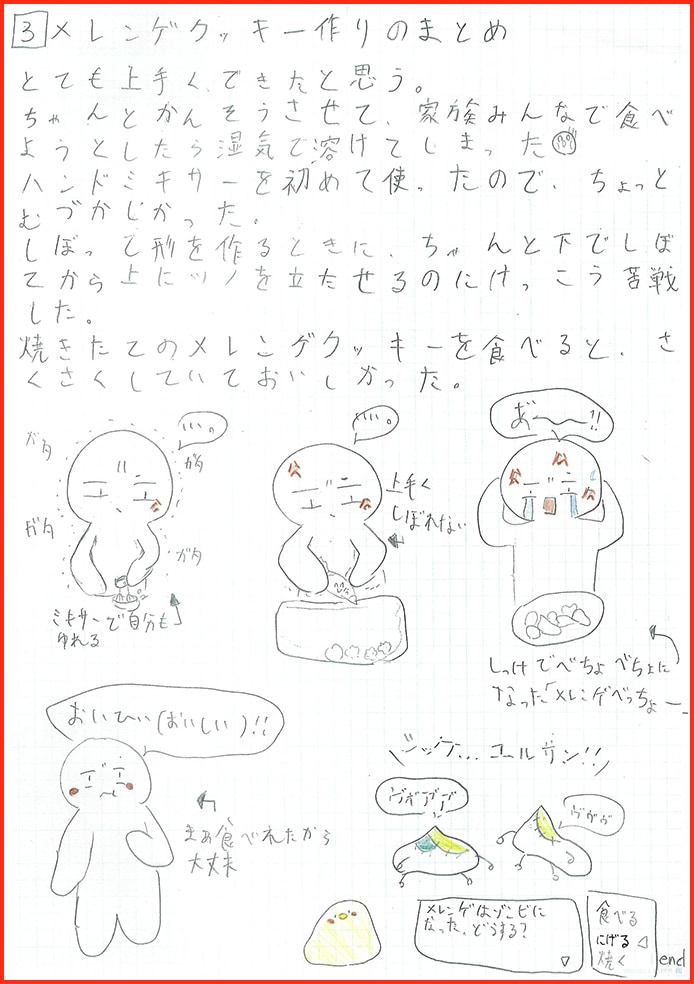 3 メレンゲクッキー作りのまとめ
とても上手くできたと思う。
ちゃんとかんそうさせて、家族みんなで食べ
ようとしたら湿気で溶けてしまった
ハンドミキサーを初めて使ったので、ちょっと
むづかしかった。
しぼって形を作るときに、ちゃんと下でしぼ
てから上にツノを立たせるのにけっこう苦戦
した。
焼きたてのメレンゲクッキーを食べると、さ
くさくしていておいしかった。
ガタ
ガタ
ガタ
ガタ
…。
ミキサーで自分も
ゆれる
…。
上手く
しぼれない
あ"〜〜!!
しっけでべちょべちょに
なった「メレンゲべっちょー」
おいひい(おいしい)!!
まぁ食べれたから
大丈夫
シッケ…ユルサン!!
ヴボアアア
ヴヴゥ
メレンゲはゾンビに
なった。どうする?
▽
食べる
にげる ◁
焼く
end